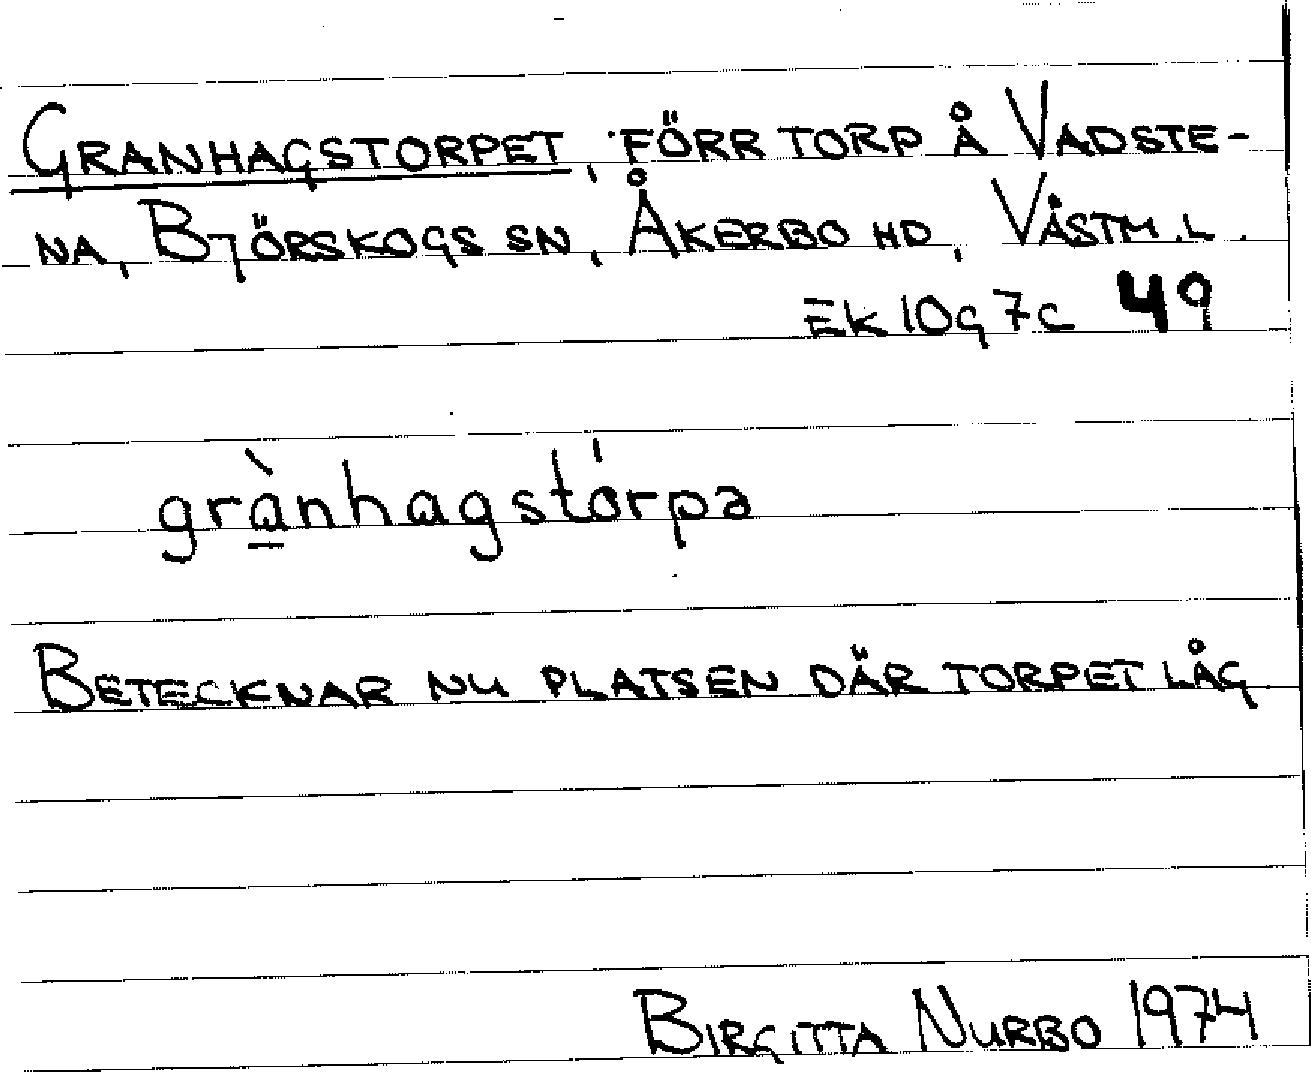 GRANHAGSTORPET, FÖRR TORP Å VADSTE-
NA, BJÖRSKOGS SN, ÅKERBO HD, VÄSTM.L.
EK 10g 7c 49
grànhagstórpə
BETECKNAR NU PLATSEN DÄR TORPET LÅG
BIRGITTA NURBO 1974